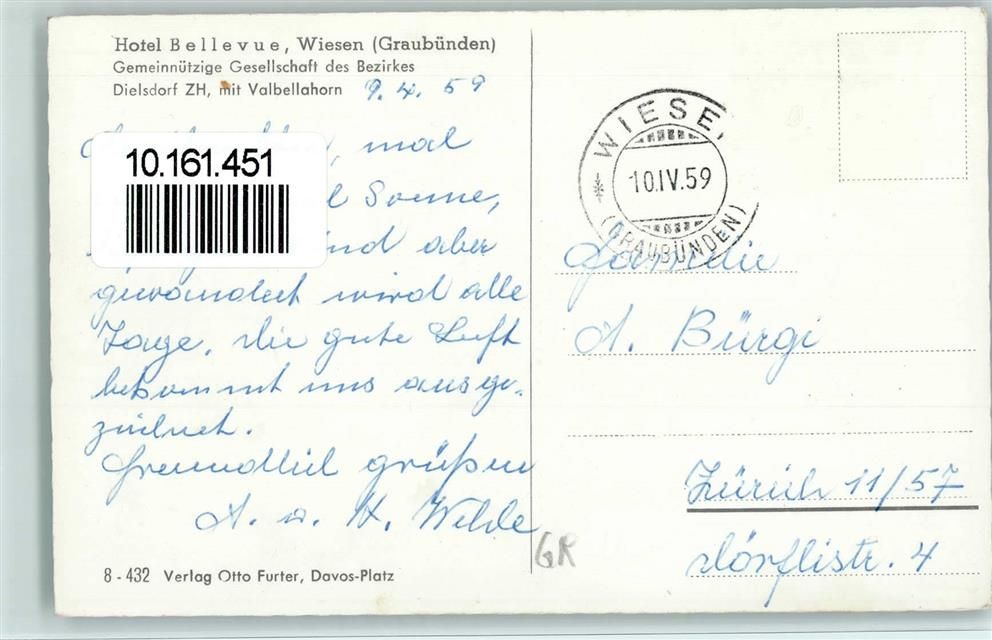 Hotel Bellevue, Wiesen (Graubünden)
Gemeinnützige Gesellschaft des Bezirkes
Dielsdorf ZH, mit Valbellahorn 9.4.59
mal
10.161.451
Sonne,
aber
gewandert wird alle
Tage. Die gute Luft
bekommt uns ausge-
zeichnet.
Freundlich grüßen
A. u. H.
8 - 432 Verlag Otto Furter, Davos-Platz
WIESE
10.IV.59
(GRAUBÜNDEN)
Familie
A. Bürgi
Zürich 11/57
Dörflistr. 4
GR